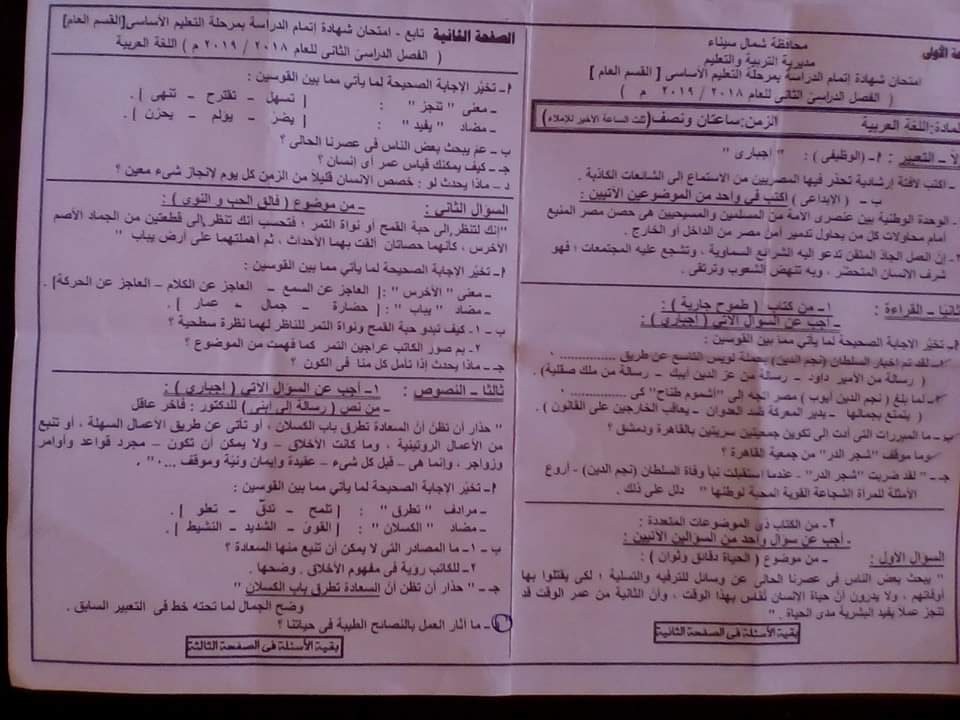 محافظة شمال سيناء
مديرية التربية والتعليم
امتحان شهادة إتمام الدراسة بمرحلة التعليم الأساسى [ القسم العام ]
( الفصل الدراسى الثانى للعام ٢٠١٨ / ٢٠١٩ م )
المادة: اللغة العربية الزمن: ساعتان ونصف (ثلث الساعة الأخير للإملاء)
أولا ــ التعبير : أ- (الوظيفى) : " إجبارى "
ـ اكتب لافتة إرشادية تحذر فيها المصريين من الاستماع إلى الشائعات الكاذبة .
ب ـ ( الابداعى ) اكتب فى واحد من الموضوعين الآتيين :
- الوحدة الوطنية بين عنصرى الأمة من المسلمين والمسيحيين هى حصن مصر المنيع
أمام محاولات كل من يحاول تدمير أمن مصر من الداخل أو الخارج .
٢- إن العمل الجاد المتقن تدعو اليه الشرائع السماوية ، وتشجع عليه المجتمعات ؛ فهو
شرف الانسان المتحضر ، وبه تنهض الشعوب وترتقى .
ثانيا ــ القراءة : ١- من كتاب ( طموح جارية ) :
ـ أجب عن السؤال الآتى ( إجبارى ) :
أ- تخيّر الإجابة الصحيحة لما يأتى مما بين القوسين :
١- لقد تم إخبار السلطان (نجم الدين) بحملة لويس التاسع عن طريق ............
( رسالة من الأمير داود - رسالة من عز الدين أيبك - رسالة من ملك صقلية).
٢- لما بلغ ( نجم الدين أيوب ) مصر اتجه إلى "أشموم طناح" كى ............
( يتمتع بجمالها - يدير المعركة ضد العدوان - يعاقب الخارجين على القانون ).
ب- ما المبررات التى أدت إلى تكوين جمعيتين سريتين بالقاهرة ودمشق ؟
وما موقف "شجر الدر" من جمعية القاهرة ؟
جـ- " لقد ضربت "شجر الدر" - عندما استقبلت نبأ وفاة السلطان (نجم الدين) - أروع
الأمثلة للمرأة الشجاعة القوية المحبة لوطنها " دلل على ذلك .
٢- من الكتاب ذى الموضوعات المتعددة :
ـ أجب عن سؤال واحد من السؤالين الآتيين :
السؤال الأول : ـ من موضوع ( الحياة دقائق وثوان ) :
" يبحث بعض الناس فى عصرنا الحالى عن وسائل للترفيه والتسلية ؛ لكى يقتلوا بها
أوقاتهم ، ولا يدرون أن حياة الانسان تقاس بهذا الوقت ، وأن الثانية من عمر الوقت قد
تنجز عملا يفيد البشرية مدى الحياة . "
بقية الأسئلة فى الصفحة الثانية
الصفحة الثانية تابع - امتحان شهادة إتمام الدراسة بمرحلة التعليم الأساسى [القسم العام]
( الفصل الدراسى الثانى للعام ٢٠١٨ / ٢٠١٩ م ) اللغة العربية
أ- تخيّر الإجابة الصحيحة لما يأتي مما بين القوسين :
ـ معنى " تنجز " : [ تسهل - تقترح - تنهى ] .
ـ مضاد " يفيد " : [ يضرّ - يؤلم - يحزن ] .
ب - عمّ يبحث بعض الناس فى عصرنا الحالى ؟
جـ - كيف يمكنك قياس عمر أى إنسان ؟
د - ماذا يحدث لو : خصص الانسان قليلاً من الزمن كل يوم لانجاز شىء معين ؟
السؤال الثانى : ـ من موضوع ( فالق الحب و النوى ) :
"إنك لتنظر إلى حبة القمح أو نواة التمر ؛ فتحسب أنك تنظر إلى قطعتين من الجماد الأصم
الأخرس ، كأنهما حصاتان ألقت بهما الأحداث ، ثم أهملتهما على أرض يباب "
أ- تخيّر الإجابة الصحيحة لما يأتي مما بين القوسين :
ـ معنى "الأخرس" :[ العاجز عن السمع - العاجز عن الكلام - العاجز عن الحركة].
ـ مضاد " يباب " :[ حضارة - جمال - عمار ] .
ب - ١- كيف تبدو حبة القمح ونواة التمر للناظر لهما نظرة سطحية ؟
٢- بم صور الكاتب عراجين التمر كما فهمت من الموضوع ؟
جـ - ماذا يحدث إذا تأمل كل منا فى الكون ؟
ثالثا ــ النصوص : ١- أجب عن السؤال الآتى ( إجبارى ) :
ـ من نص ( رسالة إلى ابنى ) للدكتور : فاخر عاقل
" حذار أن تظن أنّ السعادة تطرق باب الكسلان ، أو تأتى عن طريق الأعمال السهلة ، أو تنبع
من الأعمال الروتينية ، وما كانت الأخلاق - ولا يمكن أن تكون - مجرد قواعد وأوامر
وزواجر ، وإنما هى - قبل كل شىء - عقيدة وإيمان ونيّة وموقف ...."
أ- تخيّر الإجابة الصحيحة لما يأتي مما بين القوسين :
ـ مرادف " تطرق " : [ تلمح - تدقّ - تعلو ] .
ـ مضاد " الكسلان " : [ القوىّ - الشديد - النشيط ] .
ب - ١- ما المصادر التى لا يمكن أن تنبع منها السعادة ؟
٢- للكاتب رؤية فى مفهوم الأخلاق . وضحها .
جـ - " حذار أن تظن أنّ السعادة تطرق باب الكسلان "
وضح الجمال لما تحته خط فى التعبير السابق .
د ـ ما آثار العمل بالنصائح الطيبة فى حياتنا ؟
بقية الأسئلة فى الصفحة الثالثة